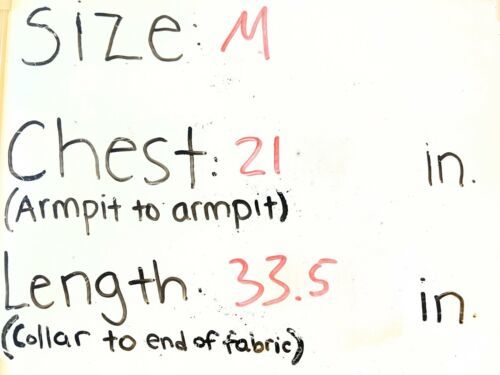 Size: M
Chest: 21 in.
(Armpit to armpit)
Length. 33.5 in.
(Collar to end of fabric)